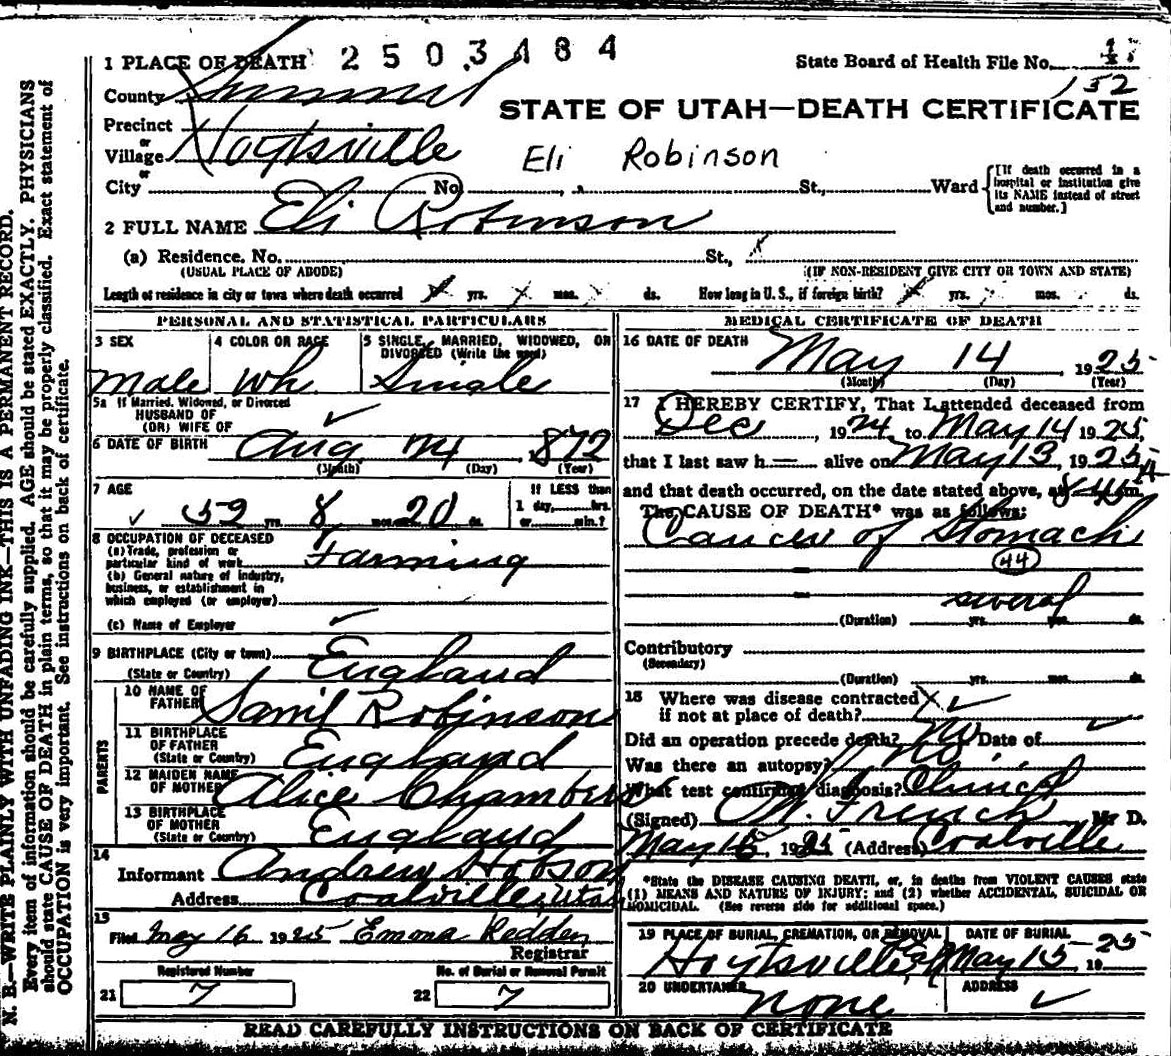 N. B.—WRITE PLAINLY WITH UNFADING INK—THIS IS A PERMANENT RECORD.
Every item of information should be carefully supplied. AGE should be stated EXACTLY. PHYSICIANS
should state CAUSE OF DEATH in plain terms, so that it may be properly classified. Exact statement of
OCCUPATION is very important. See instructions on back of certificate.
1 PLACE OF DEATH 2503484 State Board of Health File No.
152
County Summit
STATE OF UTAH—DEATH CERTIFICATE
Precinct
or
Village Hoytsville Eli Robinson
or
City No. St., Ward
[If death occurred in a hospital or institution give its NAME instead of street and number.]
2 FULL NAME Eli Robinson
(a) Residence. No. St.,
(USUAL PLACE OF ABODE) (IF NON-RESIDENT GIVE CITY OR TOWN AND STATE)
Length of residence in city or town where death occurred yrs. mos. ds. How long in U. S., if foreign birth? yrs. mos. ds.
PERSONAL AND STATISTICAL PARTICULARS
3 SEX 4 COLOR OR RACE 5 SINGLE, MARRIED, WIDOWED, OR
DIVORCED (Write the word)
Male Wh. Single
5a If Married, Widowed, or Divorced
HUSBAND OF
(OR) WIFE OF
6 DATE OF BIRTH Aug 872
(Month) (Day) (Year)
7 AGE If LESS than
52 yrs. 8 mos. 20 ds. 1 day, hrs.
or min.?
8 OCCUPATION OF DECEASED
(a) Trade, profession or
particular kind of work Farming
(b) General nature of industry,
business, or establishment in
which employed (or employer)
(c) Name of Employer
9 BIRTHPLACE (City or town)
(State or Country) England
PARENTS
10 NAME OF
FATHER Saml Robinson
11 BIRTHPLACE
OF FATHER
(State or Country) England
12 MAIDEN NAME
OF MOTHER Alice Chambers
13 BIRTHPLACE
OF MOTHER
(State or Country) England
14
Informant Andrew Hobson
Address Coalville, Utah
15
Filed May 16 1925 Emona Redden
Registrar
Registered Number No. of Burial or Removal Permit
21 7 22 7
MEDICAL CERTIFICATE OF DEATH
16 DATE OF DEATH
May 14 1925
(Month) (Day) (Year)
17 I HEREBY CERTIFY, That I attended deceased from
Dec, 1924 to May 14 1925,
that I last saw h alive on May 13, 1925
and that death occurred, on the date stated above, at 8-45 m.
The CAUSE OF DEATH* was as follows:
Cancer of Stomach
44
several
(Duration) yrs. mos. ds.
Contributory
(Secondary)
(Duration) yrs. mos. ds.
18 Where was disease contracted
if not at place of death?
Did an operation precede death? No. Date of
Was there an autopsy? No.
What test confirmed diagnosis? Clinical
(Signed) M. French M D.
May 15, 1925 (Address) Coalville
*State the DISEASE CAUSING DEATH, or, in deaths from VIOLENT CAUSES state
(1) MEANS AND NATURE OF INJURY; and (2) whether ACCIDENTAL, SUICIDAL OR
HOMICIDAL. (See reverse side for additional space.)
19 PLACE OF BURIAL, CREMATION, OR REMOVAL DATE OF BURIAL
Hoytsville May 15 1925
20 UNDERTAKER ADDRESS
none
READ CAREFULLY INSTRUCTIONS ON BACK OF CERTIFICATE